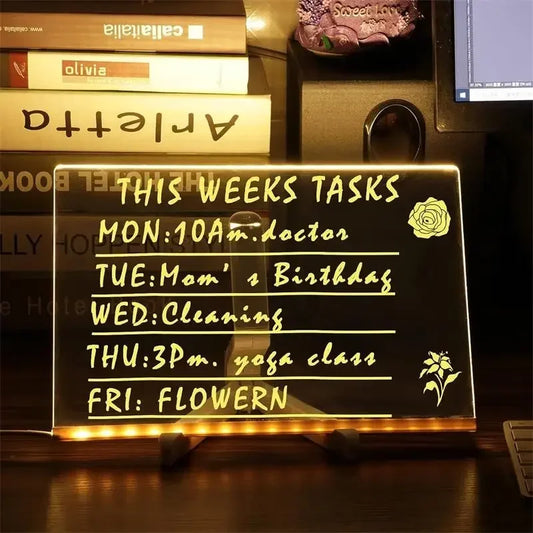 www.callaitalia.com callaitalia
olivia
Arletta
THE HOTEL BOOK
LLY HOPPEN
The Hotel
Sweet Love
THIS WEEKS TASKS
MON:10Am.doctor
TUE:Mom's Birthdag
WED:Cleaning
THU:3Pm. yoga class
FRI: FLOWERN